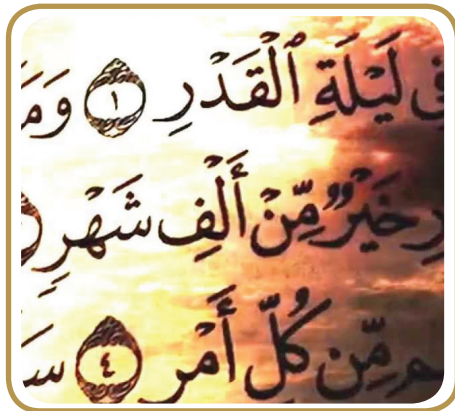 فِى لَيْلَةِ ٱلْقَدْرِ ١ وَمَ
رِ خَيْرٌ مِّنْ أَلْفِ شَهْرٍ
هِم مِّن كُلِّ أَمْرٍ ٤ سَ